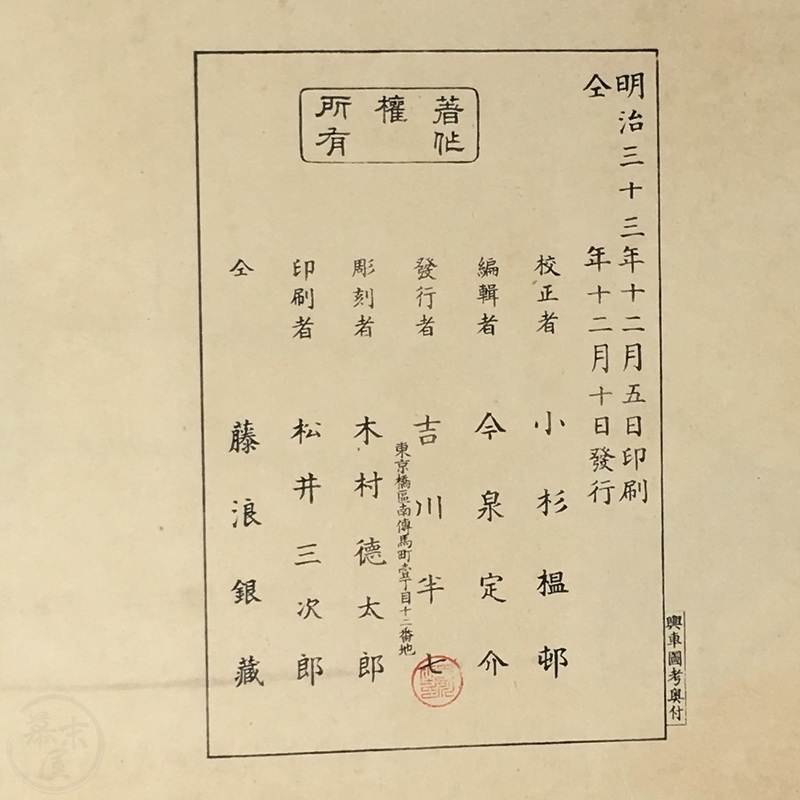 明治三十三年十二月五日印刷
仝年十二月十日發行
著作權所有
校正者 小杉榲邨
編輯者 今泉定介
發行者 吉川半七
東京橋區南傳馬町壱丁目十二番地
彫刻者 木村德太郎
印刷者 松井三次郎
仝 藤浪銀藏
輿車圖考奥付
幕末屋